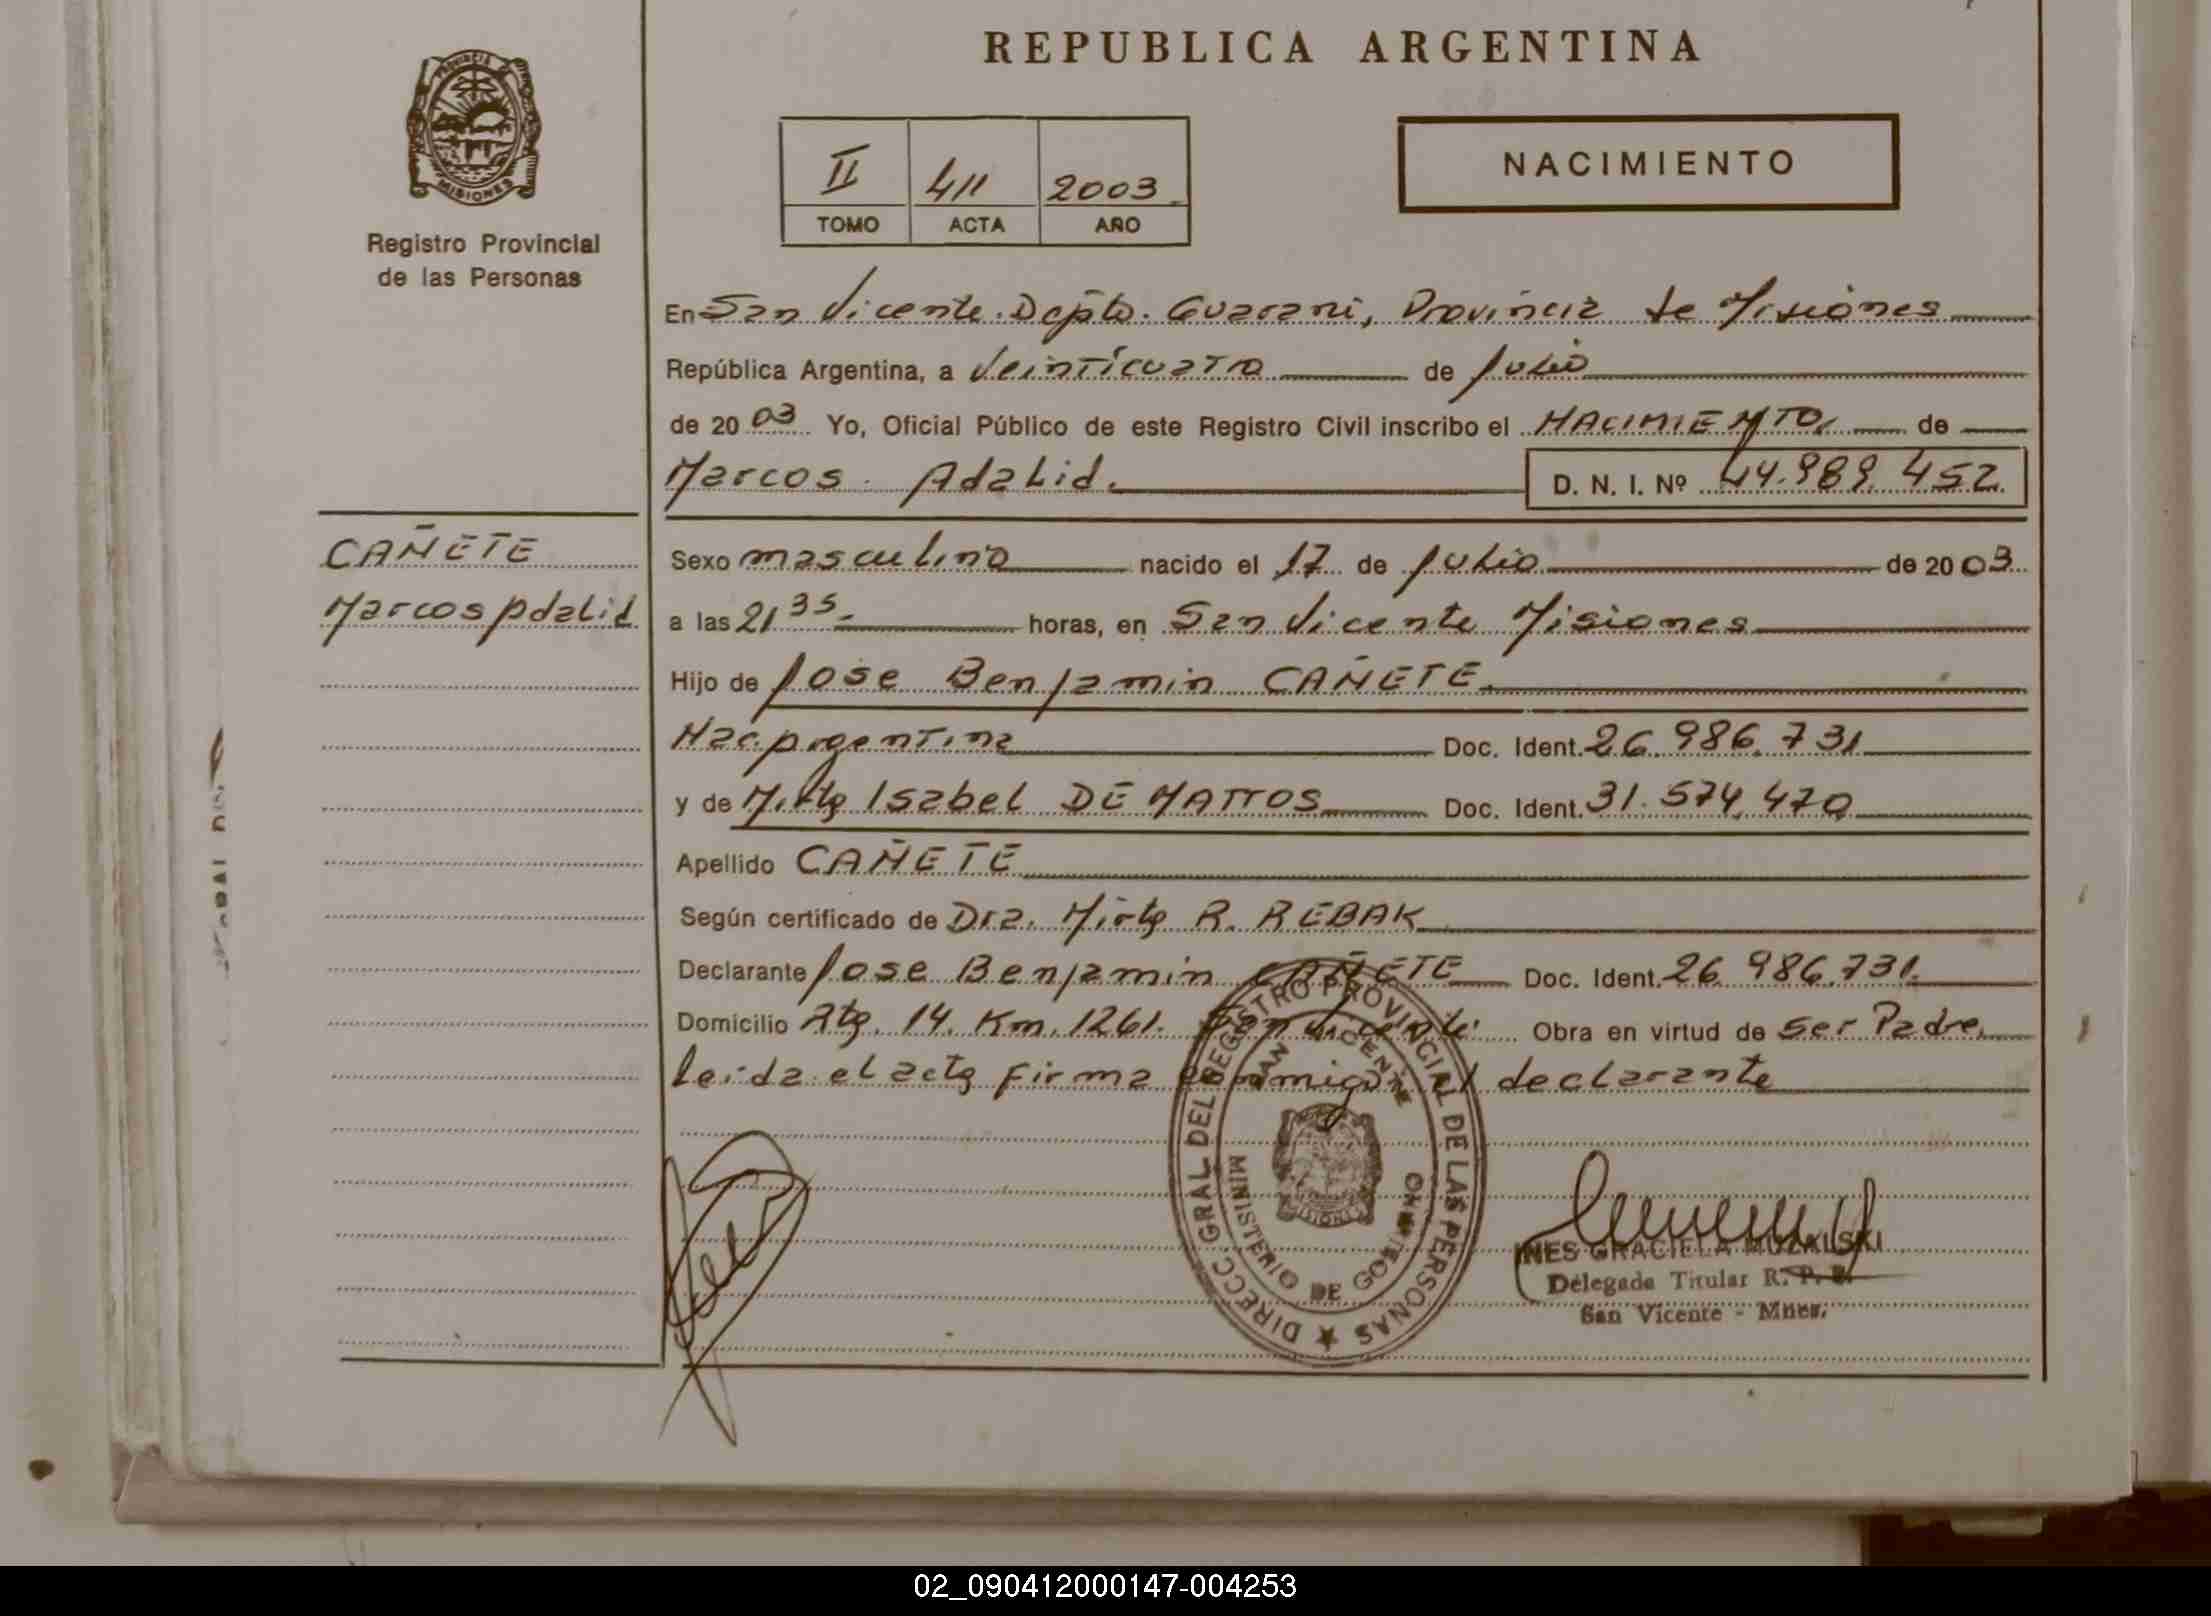 REPUBLICA ARGENTINA
PROVINCIA DE
MISIONES
Registro Provincial
de las Personas
II 411 2003
TOMO ACTA AÑO
NACIMIENTO
En San Vicente. Dcpto. Guarani, Provincia de Misiones
República Argentina, a Veinticuatro de Julio
de 20 03 Yo, Oficial Público de este Registro Civil inscribo el NACIMIENTO. de
Marcos Adalid. D. N. I. Nº 44.989.452
CAÑETE
Marcos Adalid
Sexo masculino nacido el 17 de Julio de 20 03
a las 21 35 horas, en San Vicente Misiones
Hijo de Jose Benjamin CAÑETE
Nac. Argentina Doc. Ident. 26.986.731
y de Mirta Isabel DE MATTOS Doc. Ident. 31.574.470
Apellido CAÑETE
Según certificado de Dra. Mirta R. REBAK
Declarante Jose Benjamin CAÑETE Doc. Ident. 26.986.731
Domicilio Rta. 14. Km. 1261. San Vicente. Obra en virtud de ser Padre,
leida el acta firma conmigo el declarante
DIRECC. GRAL DEL REGISTRO PROVINCIAL DE LAS PERSONAS
SAN VICENTE
MINISTERIO DE GOBIERNO
MISIONES
INES GRACIELA
Delegada Titular R. P.
San Vicente - Mnes.
02_090412000147-004253